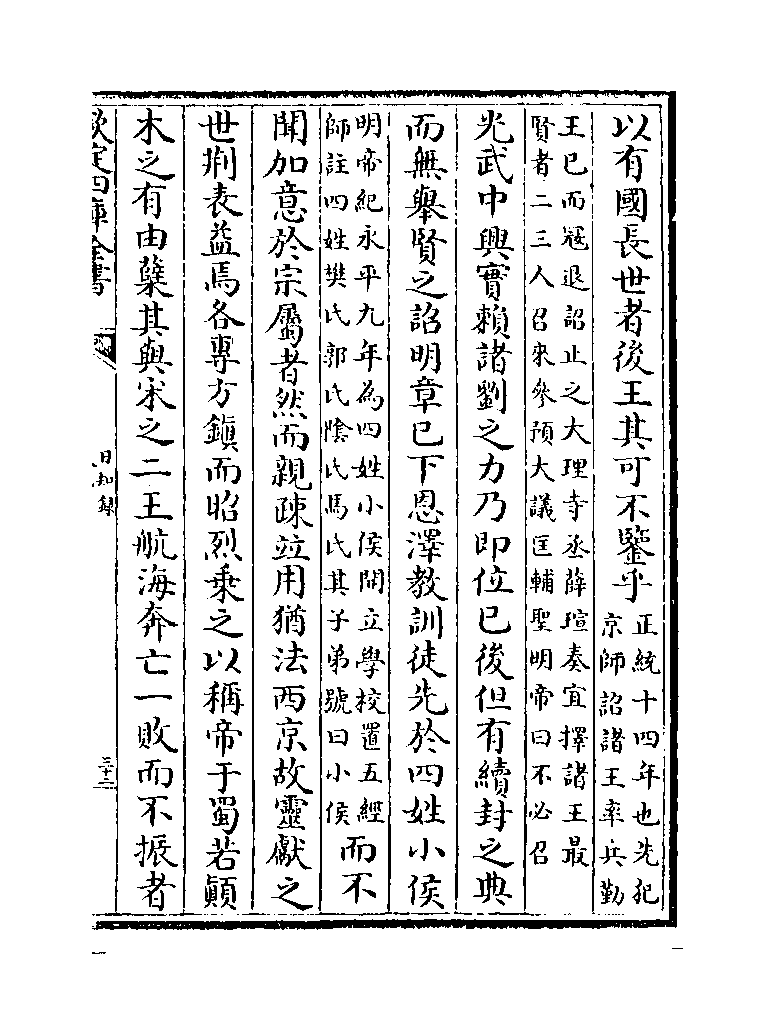 以有國長世者後王其可不鑒乎正統十四年也先犯
京師詔諸王率兵勤
王已而冦退詔止之大理寺丞薛瑄奏宜擇諸王最
賢者二三人召來參預大議匡輔聖明帝曰不必召
光武中興實賴諸劉之力乃即位已後但有續封之典
而無舉賢之詔明章已下恩澤教訓徒先於四姓小侯
明帝紀永平九年為四姓小侯開立學校置五經
師註四姓樊氏郭氏陰氏馬氏其子弟號曰小侯而不
聞加意於宗屬者然而親疎竝用猶法西京故靈獻之
世荆表益焉各專方鎮而昭烈乗之以稱帝于蜀若顛
木之有由櫱其與宋之二王航海奔亡一敗而不振者
欽定四庫全書
日知録
三十二